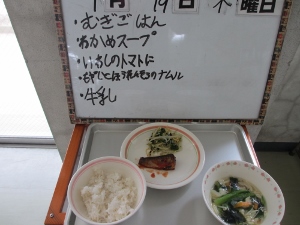 1月19日 木 曜日
・むぎごはん
・わかめスープ
・いわしのトマトに
・もやしとほうれんそうのナムル
・牛乳